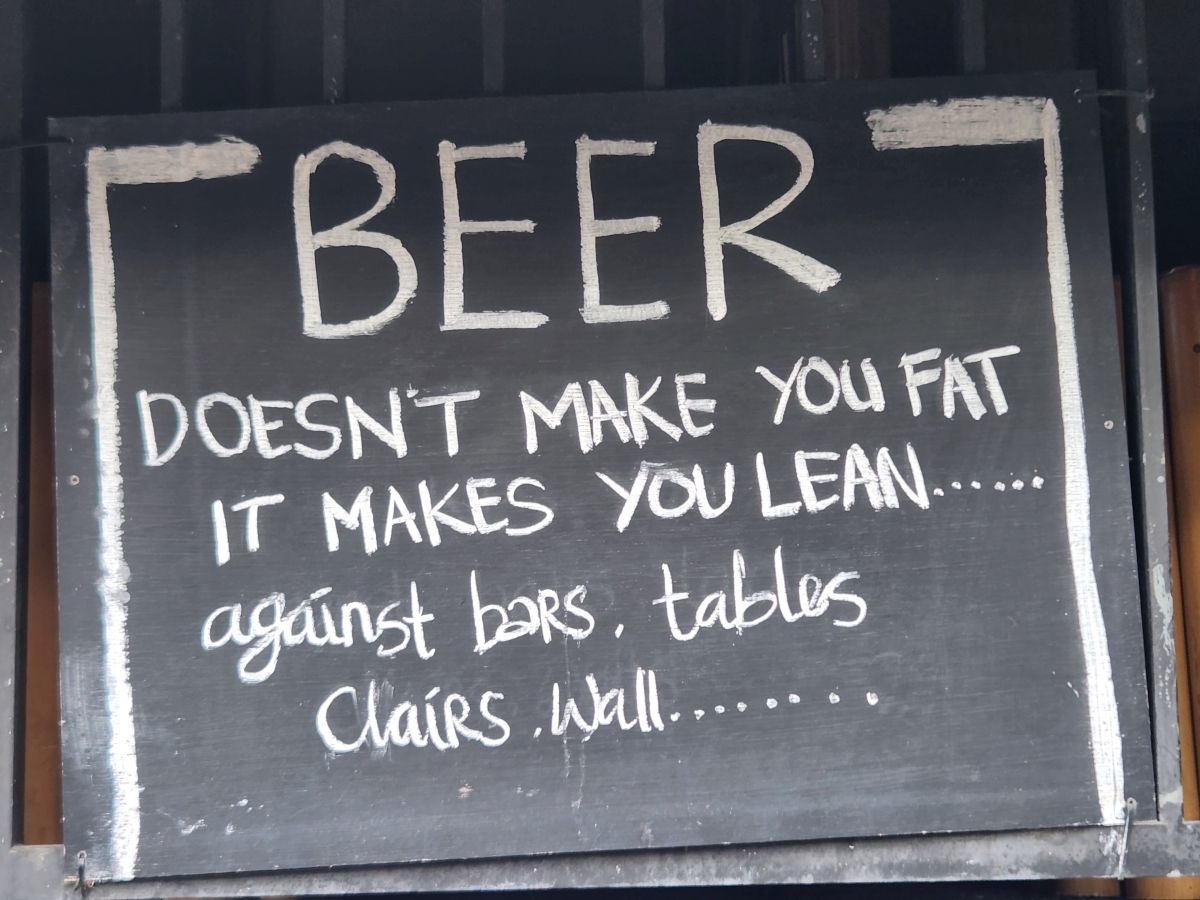 BEER
DOESN'T MAKE YOU FAT
IT MAKES YOU LEAN......
against bars, tables
Clairs, Wall.........